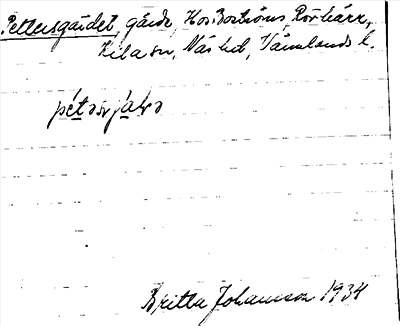 Pettersgärdet, gärde, Hos Boströms, Rörkärr,
Kila sn, Näs hd, Värmlands l.
pétərjäḷə
Britta Johansson 1934